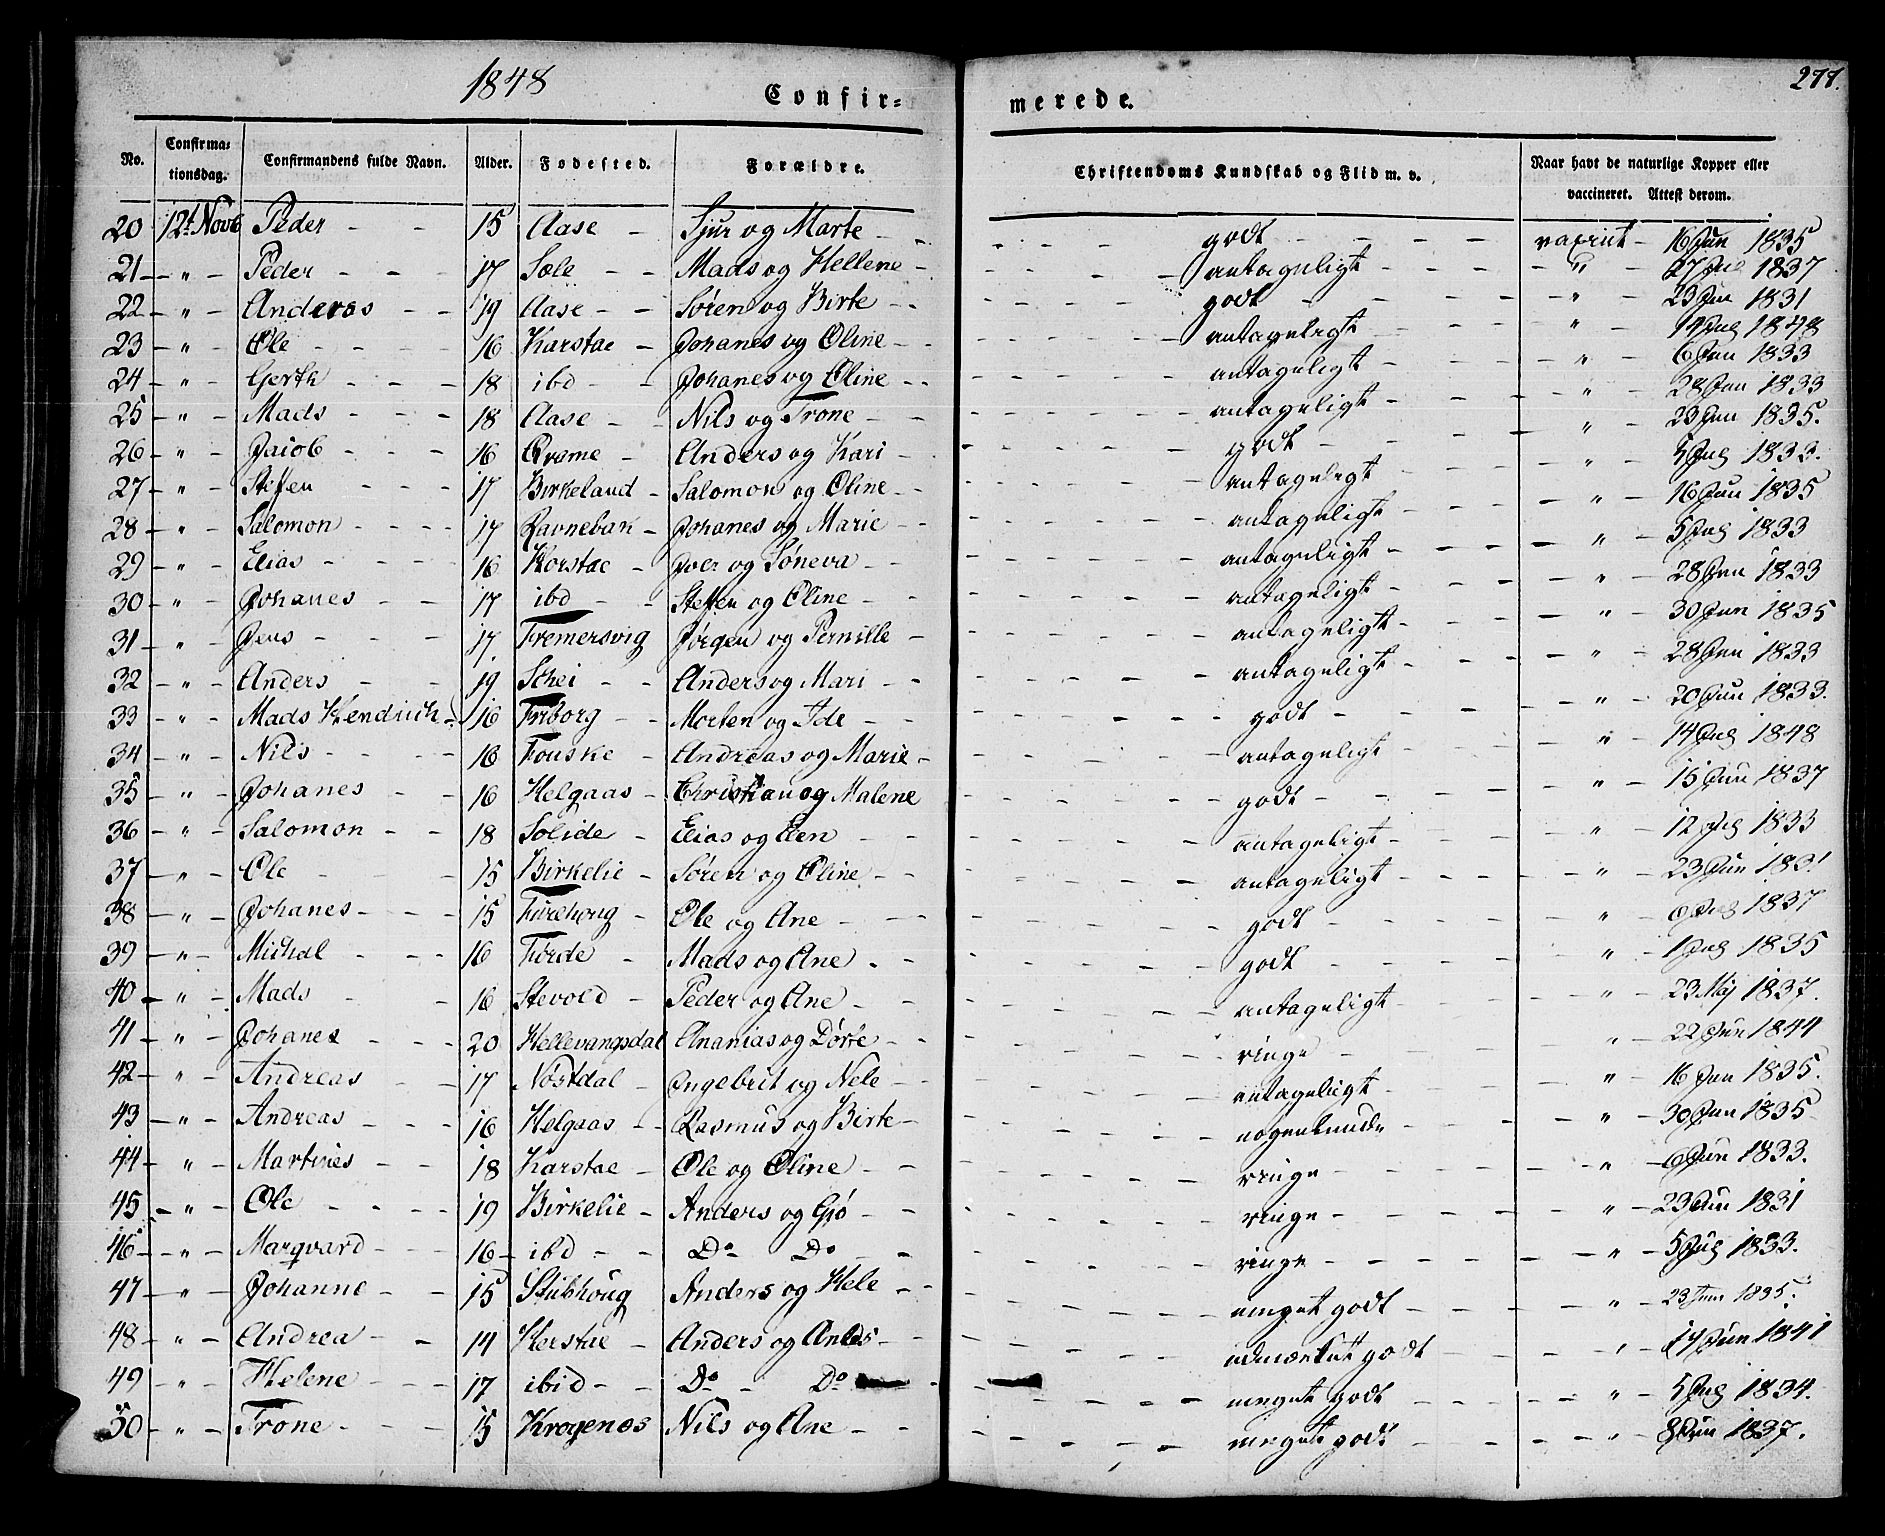 1848
277.
Confir= merede.
No. Confirmationsdag. Confirmandens fulde Navn. Alder. Fodested. Forældre. Christendoms Kundskab og Flid m. v. Naar havt de naturlige Kopper eller vaccineret. Attest derom.
20 12t Novb Peder - - 15 Aase - - Sjur og Marte - - godt - - 16 Jun 1835
21 - " - Peder - - 17 Sæle - - Mads og Hellene - antageligt - - " - 27 1837
22 - " - Anderas - - 19 Aase - - Søren og Birte - - godt - - " - 23 Jun 1831
23 - " - Ole - - 16 Karstae - Johanes og Oline - - antageligt - - " - 1848
24 - " - Gerth - - 18 ibd - - Johanes og Oline - - antageligt - - " - 6 Jun 1833
25 - " - Mads - - 18 Aase - - Nils og Trone - - antageligt - - " - 28 Jun 1833
26 - " - Jacob - - 16 Qvame - Anders og Kari - godt - - " - 23 Jun 1835.
27 - " - Steffen - - 17 Birkeland - Salomon og Oline - - antageligt - - " - 5 Jul 1833.
28 - " - Salomon - - 17 Ravnebak - Johanes og Marie - - antageligt - - " - 16 Jun 1835
29 - " - Elias - - 16 Korstae - Joer og Søneva - - antageligt - - " - 5 Jul 1833
30 - " - Johanes - - 17 ibd - - Steffen og Oline - - antageligt - - " - 28 Jun 1833
31 - " - Jens - - 17 Tremersvig Jørgen og Pernille - antageligt - - " - 30 Jun 1835
32 - " - Anders - - 19 Schei - - Anders og Mari - - antageligt - - " - 28 Jun 1833
33 - " - Mads Hendrich - 16 Frborg - - Morten og Ide - - godt - - " - 20 Jun 1833.
34 - " - Nils - - 16 Fouske - Andreas og Marie - antageligt - - " - 14 Jul 1848
35 - " - Johanes - - 16 Helgaas - Christian og Malene godt - - " - 15 Jun 1837
36 - " - Salomon - - 18 Solide - Elias og Elen - - antageligt - - " - 12 Jul 1833
37 - " - Ole - - 15 Birkelie - Søren og Oline - - antageligt - - " - 23 Jun 1831
38 - " - Johanes - - 15 Furehoug - Ole og Ane - - godt - - " - 1837
39 - " - Michal - - 16 Førde - Mads og Ane - - godt - - " - 1 Jul 1835
40 - " - Mads - - 16 Stevold - Peder og Ane - - antageligt - - " - 23 Maj 1837.
41 - " - Johanes - - 20 Hellevangsdal Ananias og Dørte - - ringe - - " - 22 Jun 1844
42 - " - Andreas - - 17 Nøstdal - Ingebrit og Nele - - antageligt - - " - 16 Jun 1835.
43 - " - Andreas - - 16 Helgaas - Rasmus og Birte - nogenlunde - - " - 30 Jun 1835
44 - " - Martines - - 18 Karstae - Ole og Oline - - ringe - - " - 6 Jun 1833.
45 - " - Ole - - 19 Birkelie - Anders og Gjø - - ringe - - " - 23 Jun 1831
46 - " - Marqvard - - 16 - ibd - - Do Do - - ringe - - " - 5 Jul 1833.
47 - " - Johanne - - 15 Stubhoug Anders og Hele - - meget godt - - " - 23 Juni 1835.
48 - " - Andrea - - 14 Kerstae - Anders og - udmærket godt - - " - 14 Jun 1841
49 - " - Helene - - 17 ibid - - Do - Do - meget godt - - " - 5 Jul 1834.
50 - " - Trone - - 15 Krogenes Nils og Ane - - meget godt - - " - 8 Jun 1837.